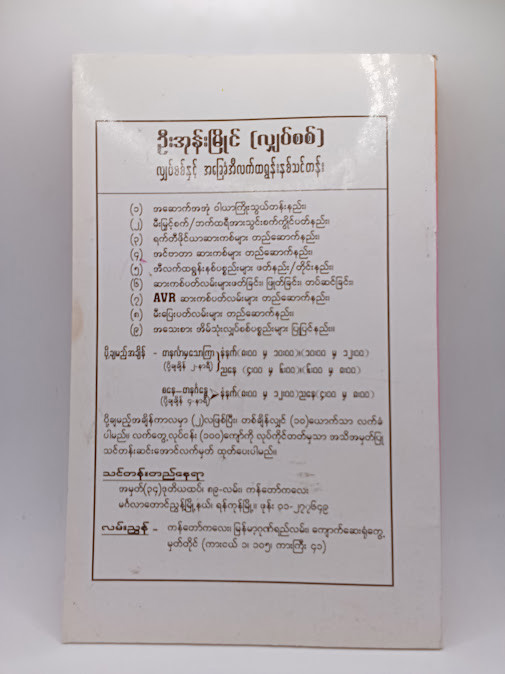 ဦးအုန်းမြိုင် (လျှပ်စစ်)
လျှပ်စစ်နှင့် အခြေခံအီလက်ထရွန်းနစ်သင်တန်း
(၁) အဆောက်အအုံ ဝါယာကြိုးသွယ်တန်းနည်း၊
(၂) မီးမြှင့်စက်/ဘက်ထရီအားသွင်းစက်ကွိုင်ပတ်နည်း၊
(၃) ရက်တီဖိုင်ယာဆားကစ်များ တည်ဆောက်နည်း၊
(၄) အင်ဗာတာ ဆားကစ်များ တည်ဆောက်နည်း၊
(၅) အီလက်ထရွန်းနစ်ပစ္စည်းများ ဖတ်နည်း/တိုင်းနည်း၊
(၆) ဆားကစ်ပတ်လမ်းများဖတ်ခြင်း၊ ဖြုတ်ခြင်း၊ တပ်ဆင်ခြင်း၊
(၇) AVR ဆားကစ်ပတ်လမ်းများ တည်ဆောက်နည်း၊
(၈) မီးပြေးပတ်လမ်းများ တည်ဆောက်နည်း၊
(၉) အသေးစား အိမ်သုံးလျှပ်စစ်ပစ္စည်းများ ပြုပြင်နည်း။
ပို့ချမည့်အချိန် - တနင်္လာမှသောကြာ နံနက်(၈း၀၀ မှ ၁၀း၀၀)၊(၁၀း၀၀ မှ ၁၂း၀၀)
(ပို့ချချိန် ၂-နာရီ) ညနေ (၄း၀၀ မှ ၆း၀၀)၊(၆း၀၀ မှ ၈း၀၀)
စနေ-တနင်္ဂနွေ နံနက်(၈း၀၀ မှ ၁၂း၀၀)ညနေ(၄း၀၀ မှ ၈း၀၀)
(ပို့ချချိန် ၄-နာရီ)
ပို့ချမည့်အချိန်ကာလမှာ (၂)လဖြစ်ပြီး၊ တစ်ချိန်လျှင် (၁၀)ယောက်သာ လက်ခံ
ပါမည်။ လက်တွေ့လုပ်ငန်း (၁၀၀)ကျော်ကို လုပ်ကိုင်တတ်မှသာ အသိအမှတ်ပြု
သင်တန်းဆင်းအောင်လက်မှတ် ထုတ်ပေးပါမည်။
သင်တန်းတည်နေရာ
အမှတ်(၃၄)ဒုတိယထပ်၊ ၈၉-လမ်း၊ ကန်တော်ကလေး၊
မင်္ဂလာတောင်ညွန့်မြို့နယ်၊ ရန်ကုန်မြို့။ ဖုန်း ၃၁-၂၇၂၆၄၉
လမ်းညွှန် - ကန်တော်ကလေး၊ မြန်မာ့ဂုဏ်ရည်လမ်း၊ ကျောက်ဆေးရုံတွေ့
မှတ်တိုင် (ကားငယ် ၁၊ ၁၀၅၊ ကားကြီး ၄၁)